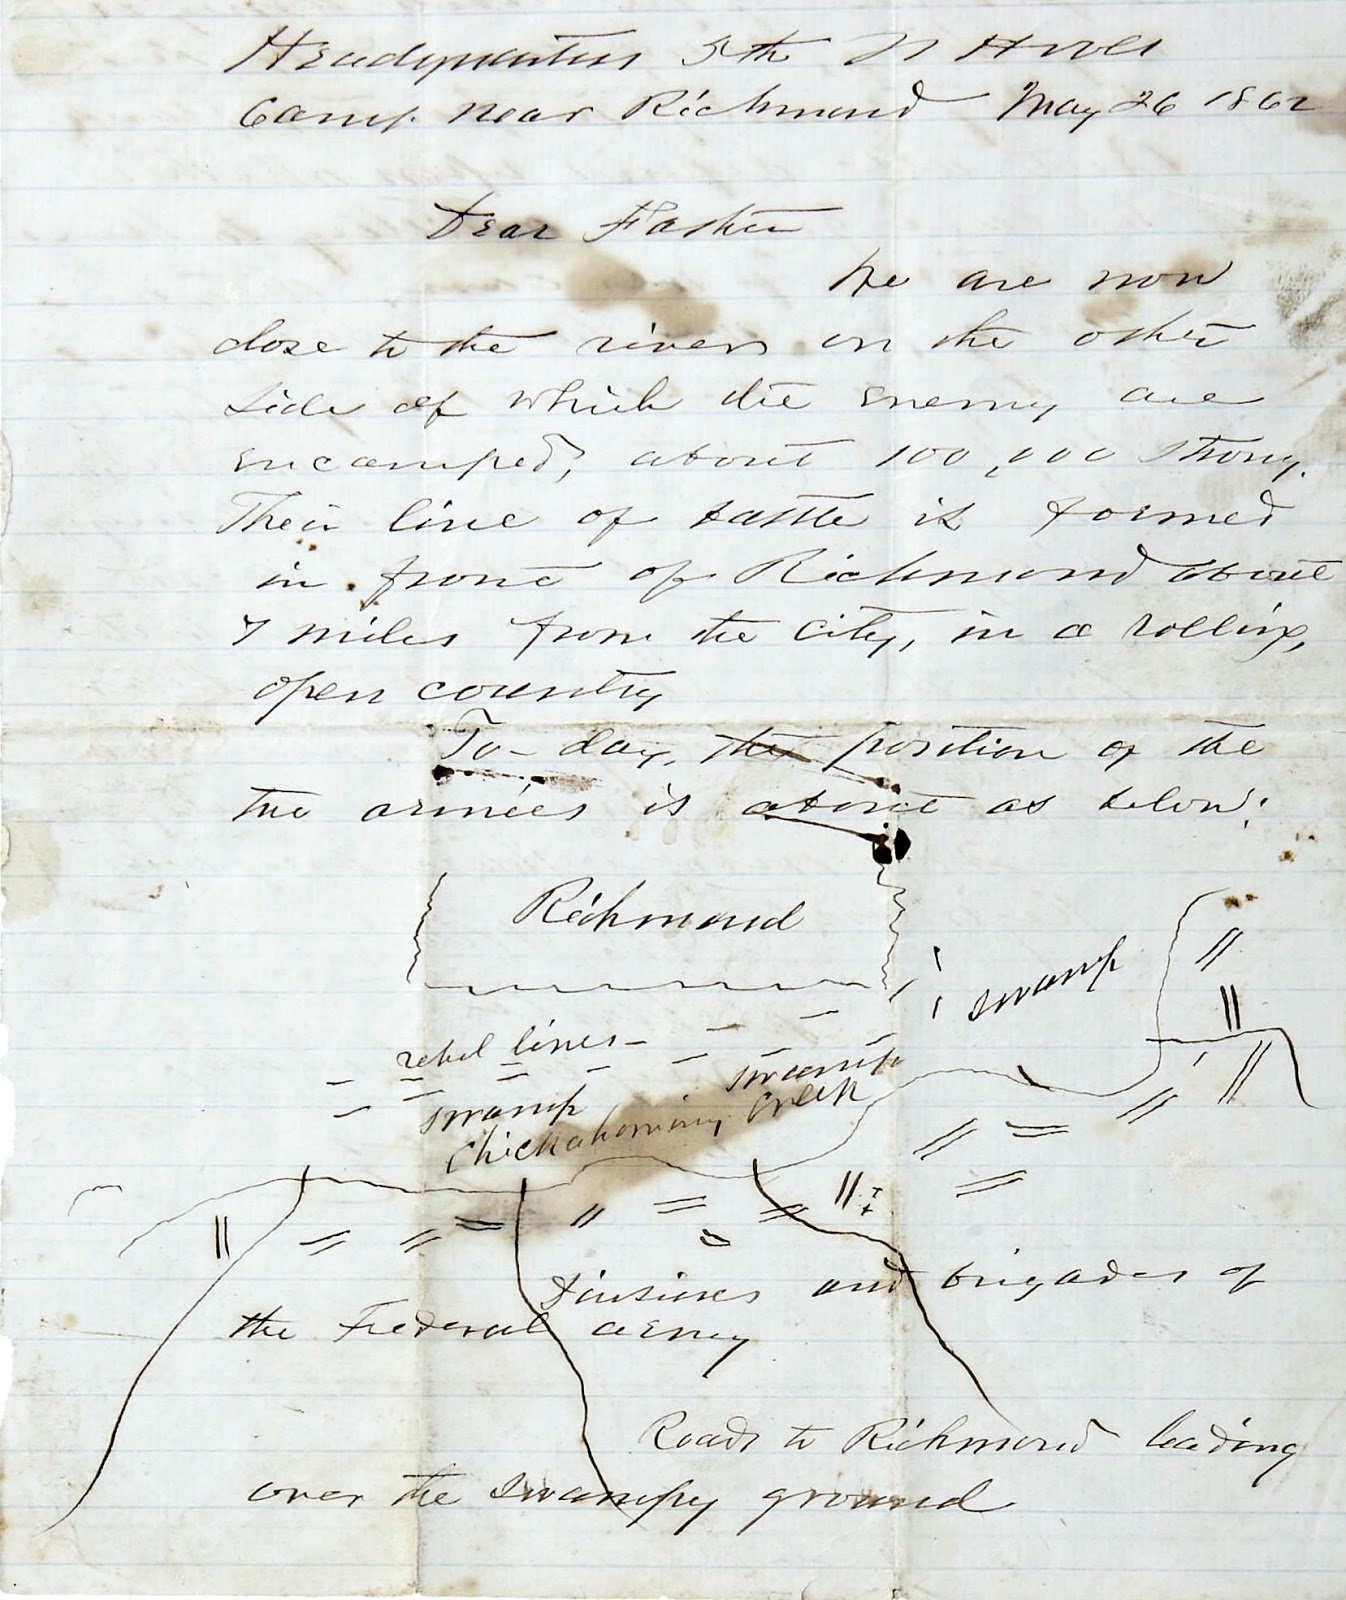 Headquarters 5th N H Vols
Camp near Richmond May 26 1862
Dear Father
We are now
close to the river on the other
side of which the enemy are
encamped, about 100,000 strong.
Their line of battle is formed
in front of Richmond about
7 miles from the city, in a rolling,
open country
To-day, the position of the
the armies is about as below:
Richmond
swamp
rebel lines
swamp
swamp
Chickahominy Creek
Divisions and brigades of
the Federal army
Roads to Richmond leading
over the swampy ground